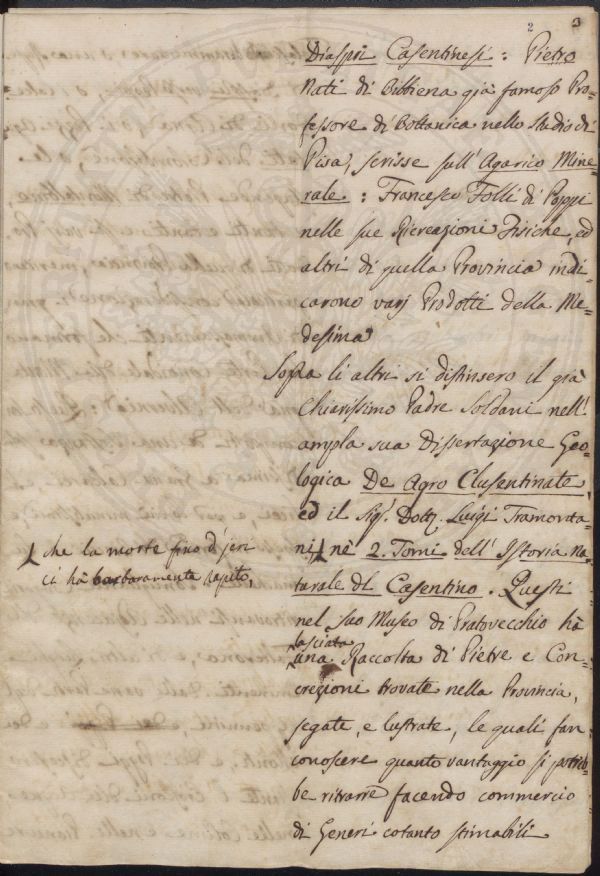 2 3
Diaspri Casentinesi : Pietro
Nati di Bibbiena già famoso Pro=
fessore di Bottanica nello Studio di
Pisa, scrisse sull'Agarico Mine=
rale : Francesco Folli di Poppi
nelle sue Ricreazioni Fisiche, ed
altri di quella Provincia indi=
carono varj Prodotti della Me=
desima
Sopra li altri si distinsero il già
Chiarissimo Padre Soldani nell'
ampla sua Dissertazione Geo=
logica De Agro Clusentinate,
ed il Sig.r Dott.r Luigi Tramonta=
ni ne 2. Tomi dell'Istoria na=
che la morte fino d'jeri
ci hà barbaramente rapito,
turale del Casentino. Questi
nel suo Museo di Pratovecchio hà
lasciata
una Raccolta di Pietre e Con=
crezioni trovate nella Provincia,
segate, e lustrate, le quali fan
conoscere quanto vantaggio si potreb=
be ritrarre facendo commercio
di Generi cotanto stimabili